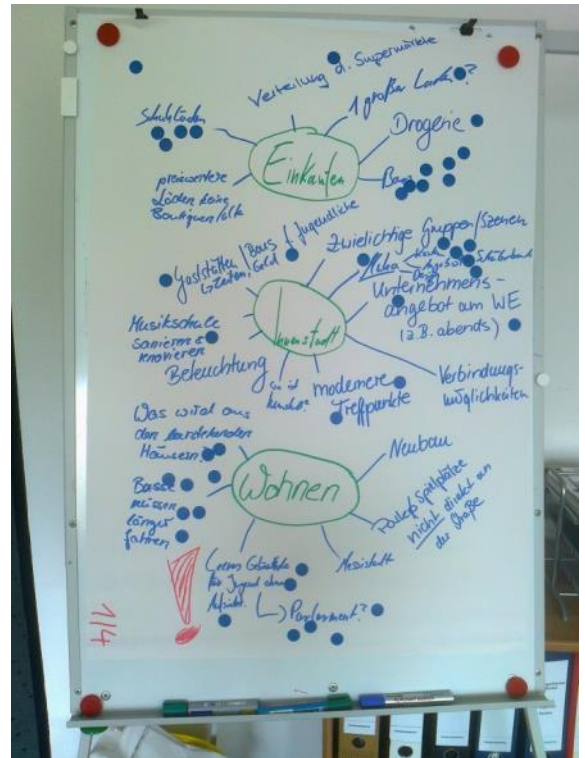 Verteilung d. Supermärkte
1 großer Laden?
Schuhläden
Drogerie
Einkaufen
preiswertere
Läden keine
Boutiquen
Gaststätten / Bars f. Jugendliche
Geld
Zwielichtige Gruppen/Szenen
Unternehmens-
angebot am WE
(z.B. abends)
Innenstadt
Musikschule
sanieren &
renovieren
Beleuchtung
modernere
Treffpunkte
Verbindungs-
möglichkeiten
Was wird aus
den
Häusern?
Neubau
Wohnen
Busse
müssen
länger
fahren
Parks & Spielplätze
nicht direkt an
der Straße
Leeres Gebäude
für Jugend ohne
Aufsicht.
Parlament?
1/4